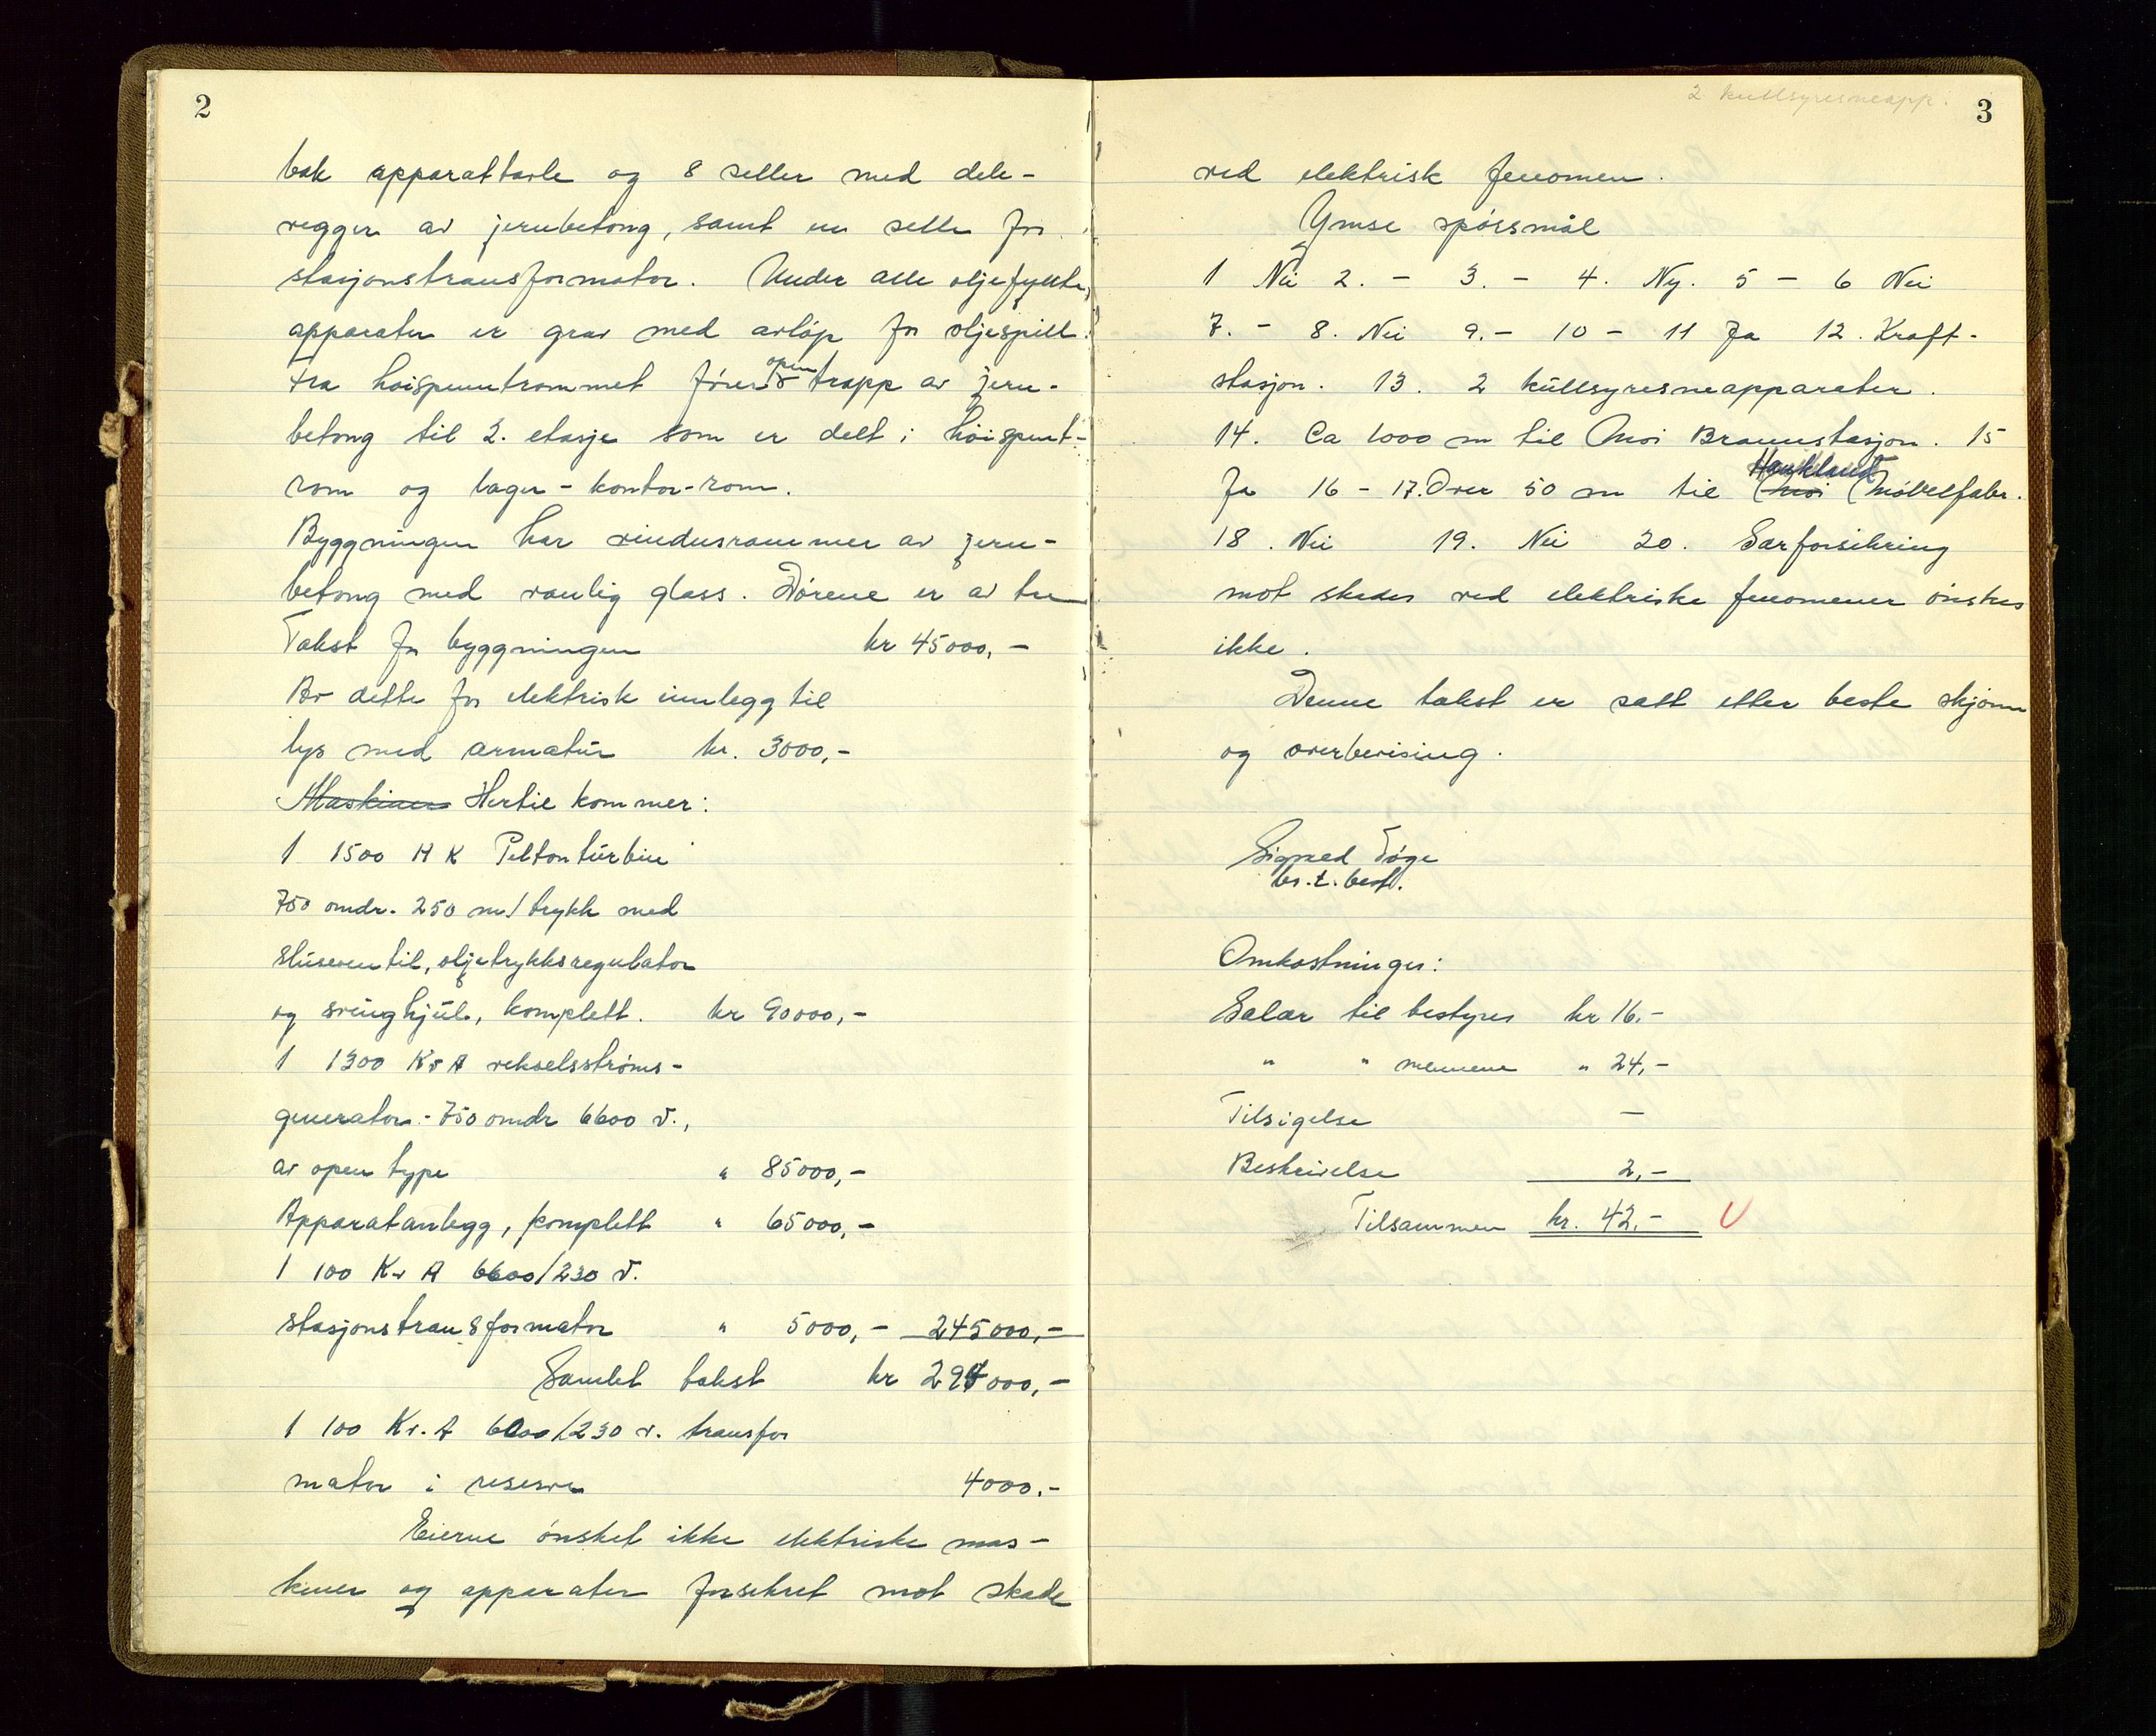 2
bak apparattavle og 8 seller med dele-
vegger av jernbetong, samt en selle for
stasjonstransformator. Under alle oljefyllte
apparater er grav med avløp for oljespill.
Fra høispenntrommet fører open trapp av jern-
betong til 2. etasje som er delt i høispent-
rom og lager-kontor-rom.
Byggningen har vindusrammer av jern-
betong med vanlig glass. Dørene er av tre
Takst for byggningen kr 45000,-
Av dette for elektrisk innlegg til
lys med armatur kr. 3000,-
Maskiner Hertil kommer:
1 1500 H K Peltonturbin
750 omdr. 250 m/trykk med
sluseventil, oljetrykksregulator
og svinghjul, komplett. kr 90000,-
1 1300 KvA vekselsstrøms-
generator - 750 omdr 6600 v.,
av open type " 85000,-
Apparatanlegg, komplett " 65000,-
1 100 Kv A 6600/230 v.
stasjonstransformator " 5000,- 245000,-
Samlet takst kr 294000,-
1 100 Kv.A 6000/230 v. transfor
mator i reserve 4000.-
Eierne ønsket ikke elektriske mas-
kiner og apparater forsikret mot skade
2 kullsyresneapp.
3
ved elektrisk fenomen.
Ymse spørsmål
1 Nei 2. - 3. - 4. Ny. 5 - 6 Nei
7. - 8. Nei 9. - 10 - 11 Ja 12. Kraft-
stasjon. 13. 2 kullsyresneapparater.
14. Ca 1000 m til Moi Brannstasjon. 15
Ja 16 - 17. Over 50 m til Moi Haukland Møbelfabr.
18. Nei 19. Nei 20. Særforsikring
mot skader ved elektriske fenomener ønskes
ikke.
Denne takst er satt etter beste skjønn
og overbevising.
Sigved Tøge
br.t.best.
Omkostninger:
Salær til bestyrer kr 16.-
" " mennene " 24,-
Tilsigelse -
Beskrivelse 2,-
Tilsammen kr. 42.-